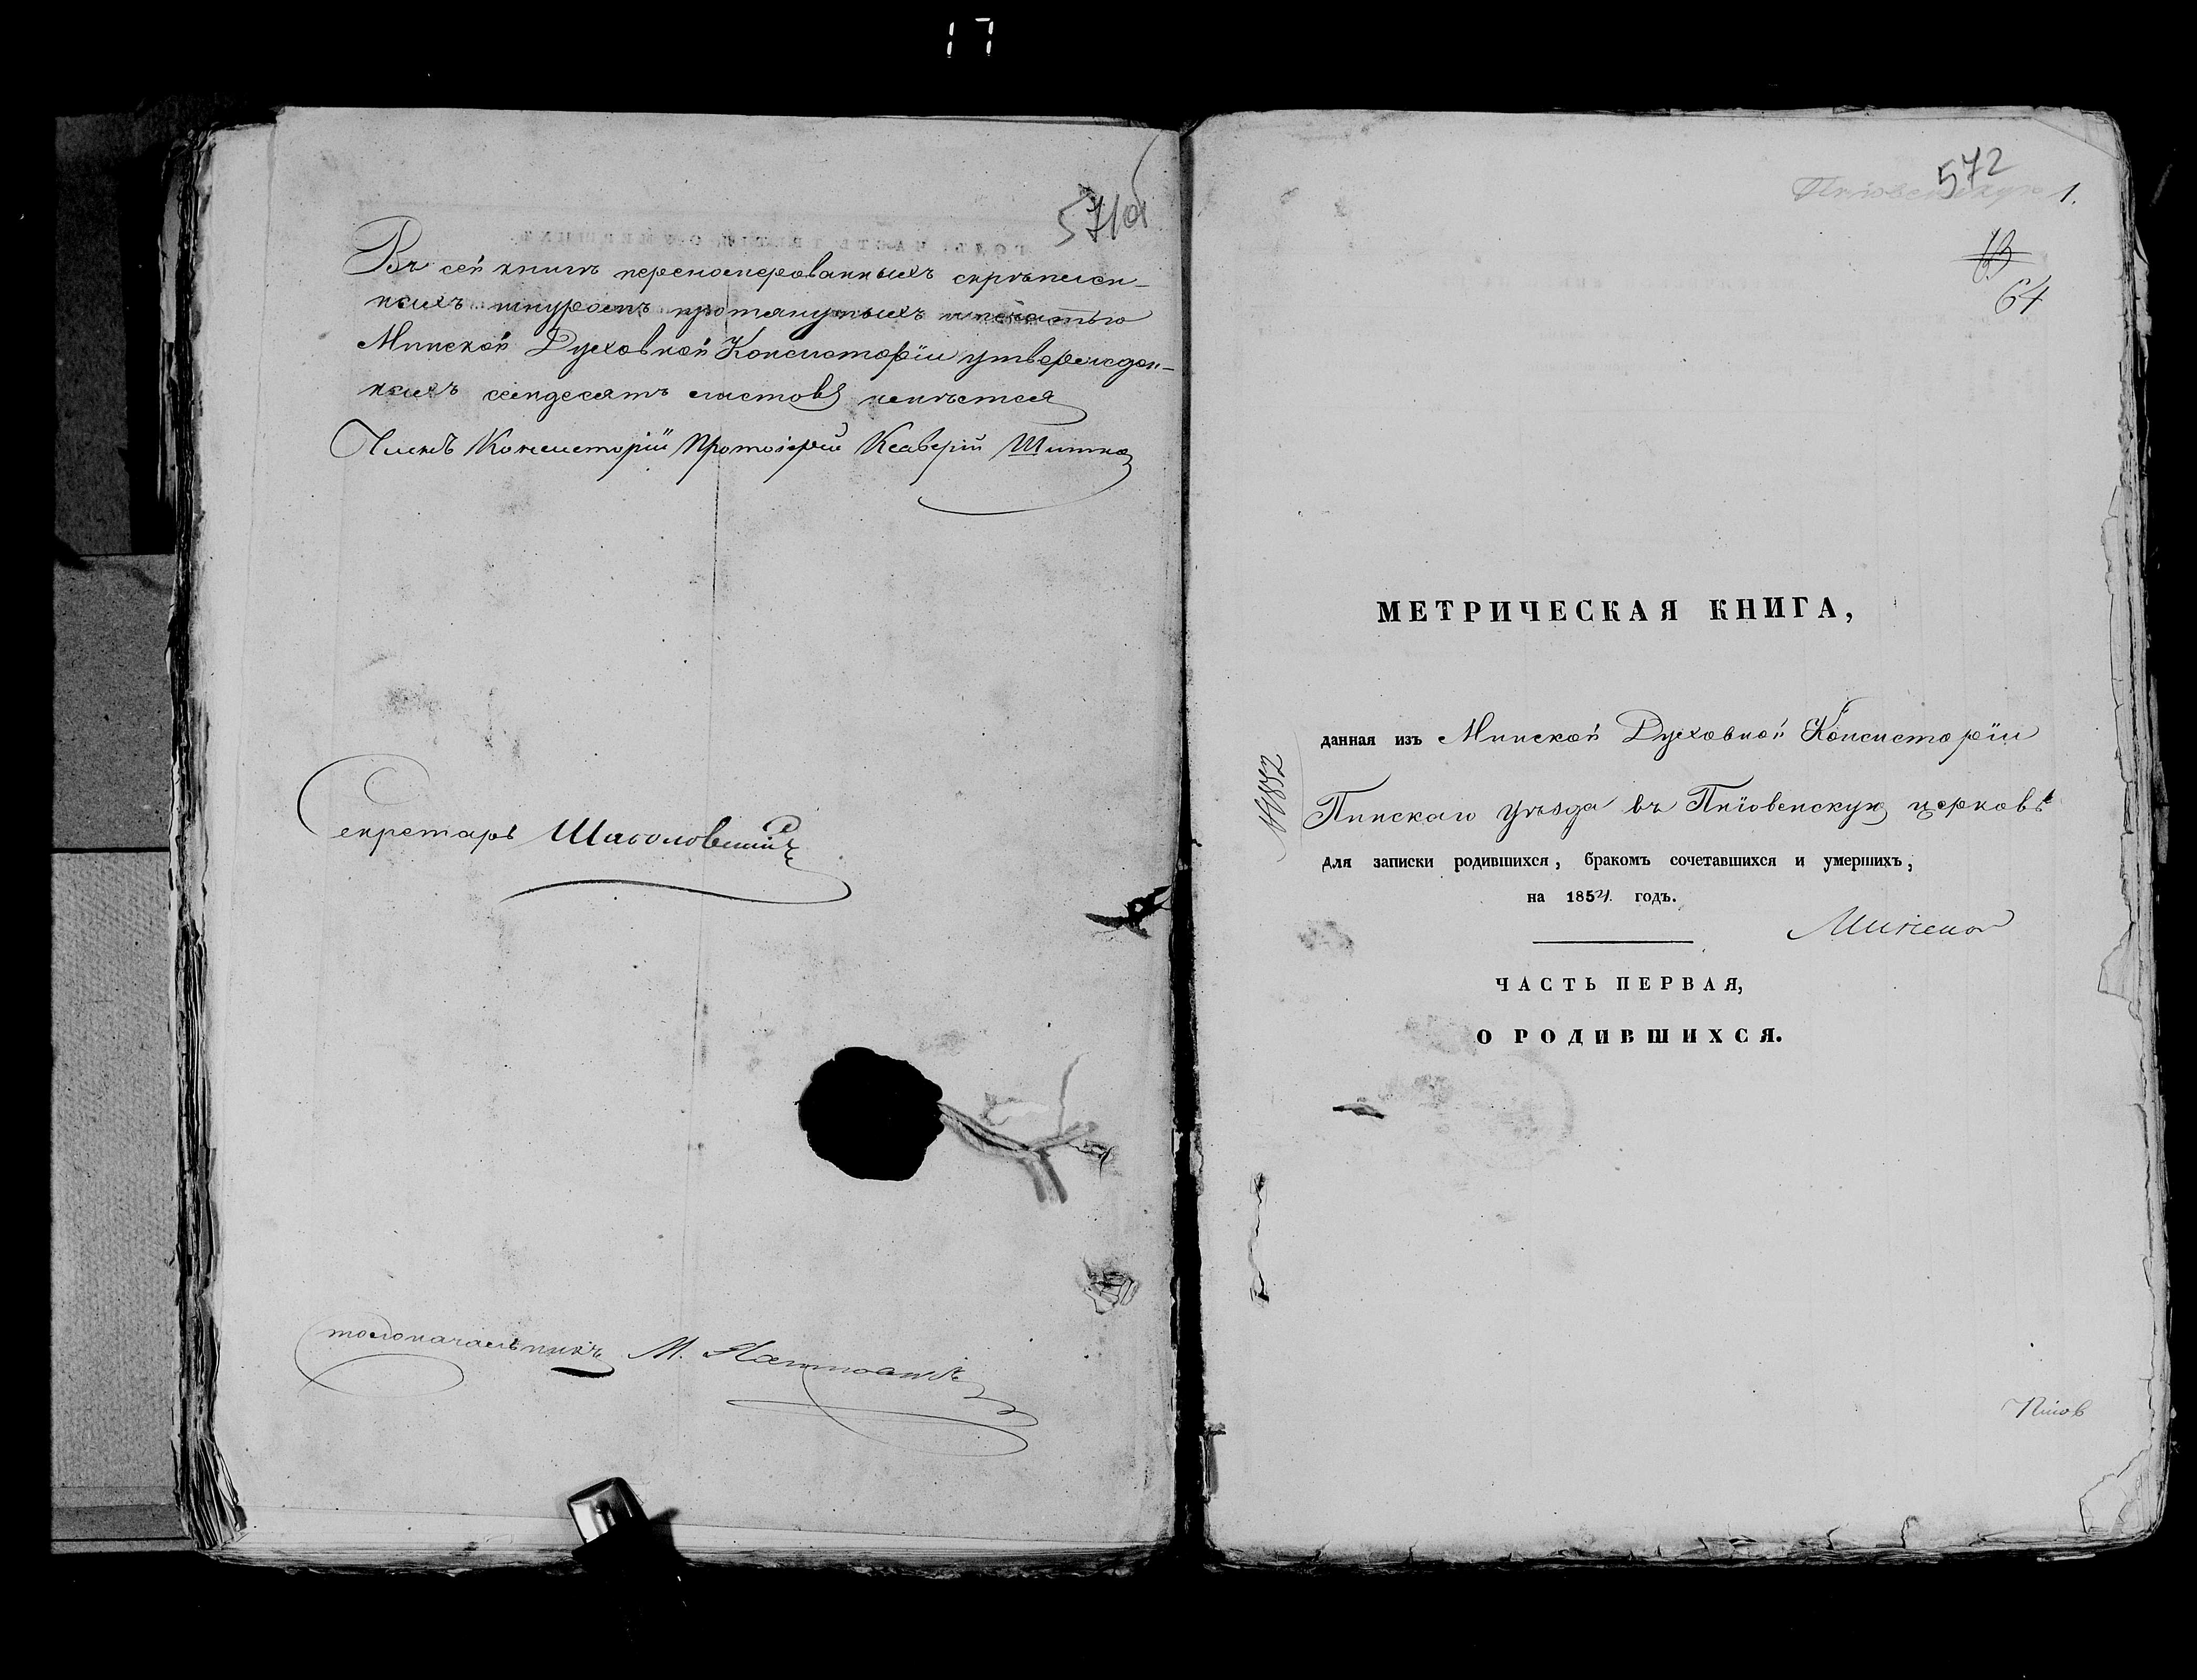 17
571об
Въ сей книгѣ перенумерованныхъ скрѣплен-
ныхъ шнуромъ протянутыхъ и печатью
Минской Духовной Консисторіи утвержден-
ныхъ семдесятъ листовъ имѣется
Членъ Консисторіи Протоіерей Ксаверій
Секретарь
столоначальникъ М.
572
Пніовенскую 1.
13
64
МЕТРИЧЕСКАЯ КНИГА,
данная изъ Минской Духовной Консисторіи
Пинскаго уѣзда въ Пніовенскую церковь
для записки родившихся, бракомъ сочетавшихся и умершихъ,
на 1854 годъ.
ЧАСТЬ ПЕРВАЯ,
О РОДИВШИХСЯ.
Пніов